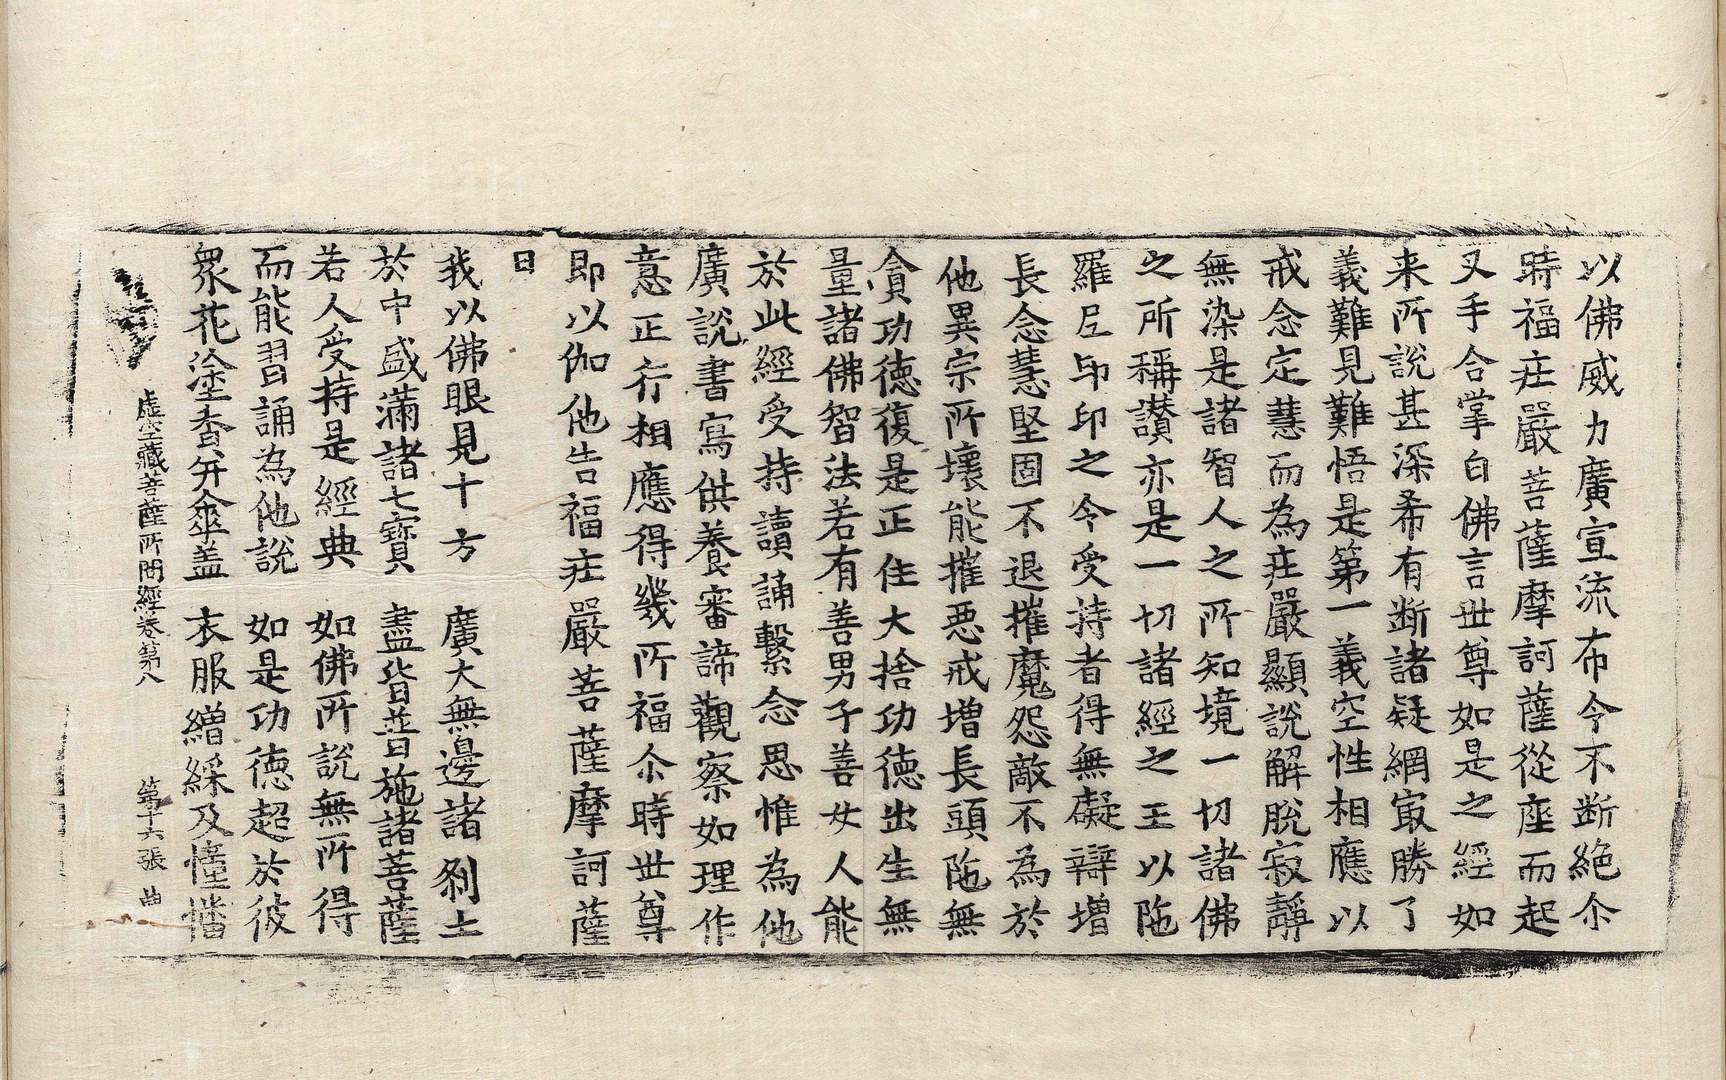 以佛威力廣宣流布令不断絶尒
時福㽵嚴菩薩摩訶薩從座而起
叉手合掌白佛言世尊如是之經如
来所說甚深希有断諸疑網㝡勝了
義難見難悟是第一義空性相應以
戒念定慧而為㽵嚴顯說解脫寂靜
無染是諸智人之所知境一切諸佛
之所稱讃亦是一切諸經之王以陁
羅尼印印之令受持者得無礙辯增
長念慧堅固不退摧魔怨敵不為於
他異宗所壞能摧惡戒增長頭陁無
貪功德復是正住大捨功德出生無
量諸佛智法若有善男子善女人能
於此經受持讀誦繫念思惟為他
廣說書寫供養審諦觀察如理作
意正行相應得幾所福尒時世尊
即以伽他告福㽵嚴菩薩摩訶薩
曰
我以佛眼見十方　廣大無邊諸刹土
於中盛滿諸七寶　盡皆普施諸菩薩
若人受持是經典　如佛所說無所得
而能習誦為他說　如是功德超於彼
衆花塗香并傘盖　衣服繒綵及幢幡
虛空藏菩薩所問經卷第八　第十六張　曲